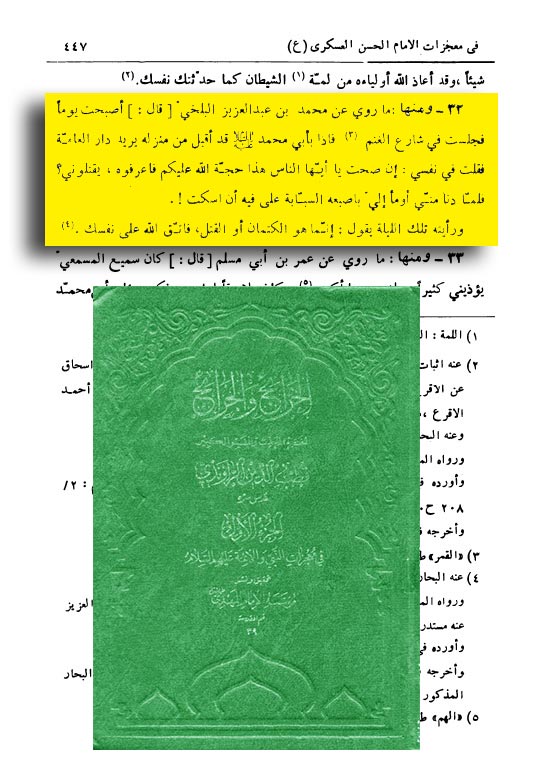 فى معجزات الامام الحسن العسكرى (ع)
٤٤٧
شيئاً ،وقد أعاذ الله أولياءه من لمّة (١) الشيطان كما حدّثتك نفسك.(٢)
٣٢ ـ ومنها :ما روي عن محمد بن عبدالعزيز البلخيّ [ قال : ] أصبحت يوماً
فجلست في شارع الغنم (٣) فاذا بأبي محمد عليه السلام قد أقبل من منزله يريد دار العامّة
فقلت في نفسي : إن صحت يا أيّها الناس هذا حجّة الله عليكم فاعرفوه ، يقتلوني؟
فلمّا دنا منّي أومأ إليّ باصبعه السبّابة على فيه أن اسكت ! .
ورأيته تلك الليلة يقول : إنّما هو الكتمان أو القتل، فاتّق الله على نفسك .(٤)
٣٣ ـ ومنها : ما روي عن عمر بن أبي مسلم [ قال : ] كان سميع المسمعيّ
يؤذيني كثيراً
١) اللمة :
٢) عنه اثبات
اسحاق
عن الاقر
أحمد
الاقرع ،
وعنه البح
ورواه الم
وأورده ف
: ٢/
٢٠٨ ح
وأخرجه ف
٣) «القمر» ط
٤) عنه البحار
ورواه الم
العزيز
عنه مستدر
وأورده فى
وأخرجه
البحار
المذكور
٥) «الهم» ط
الخرائج والجرائح
قطب الدين الراوندي
الجزء الأول
في معجزات النبي والأئمة عليهم السلام
تحقيق ونشر
مؤسسة الإمام المهدي
قم المقدسة
٣٩